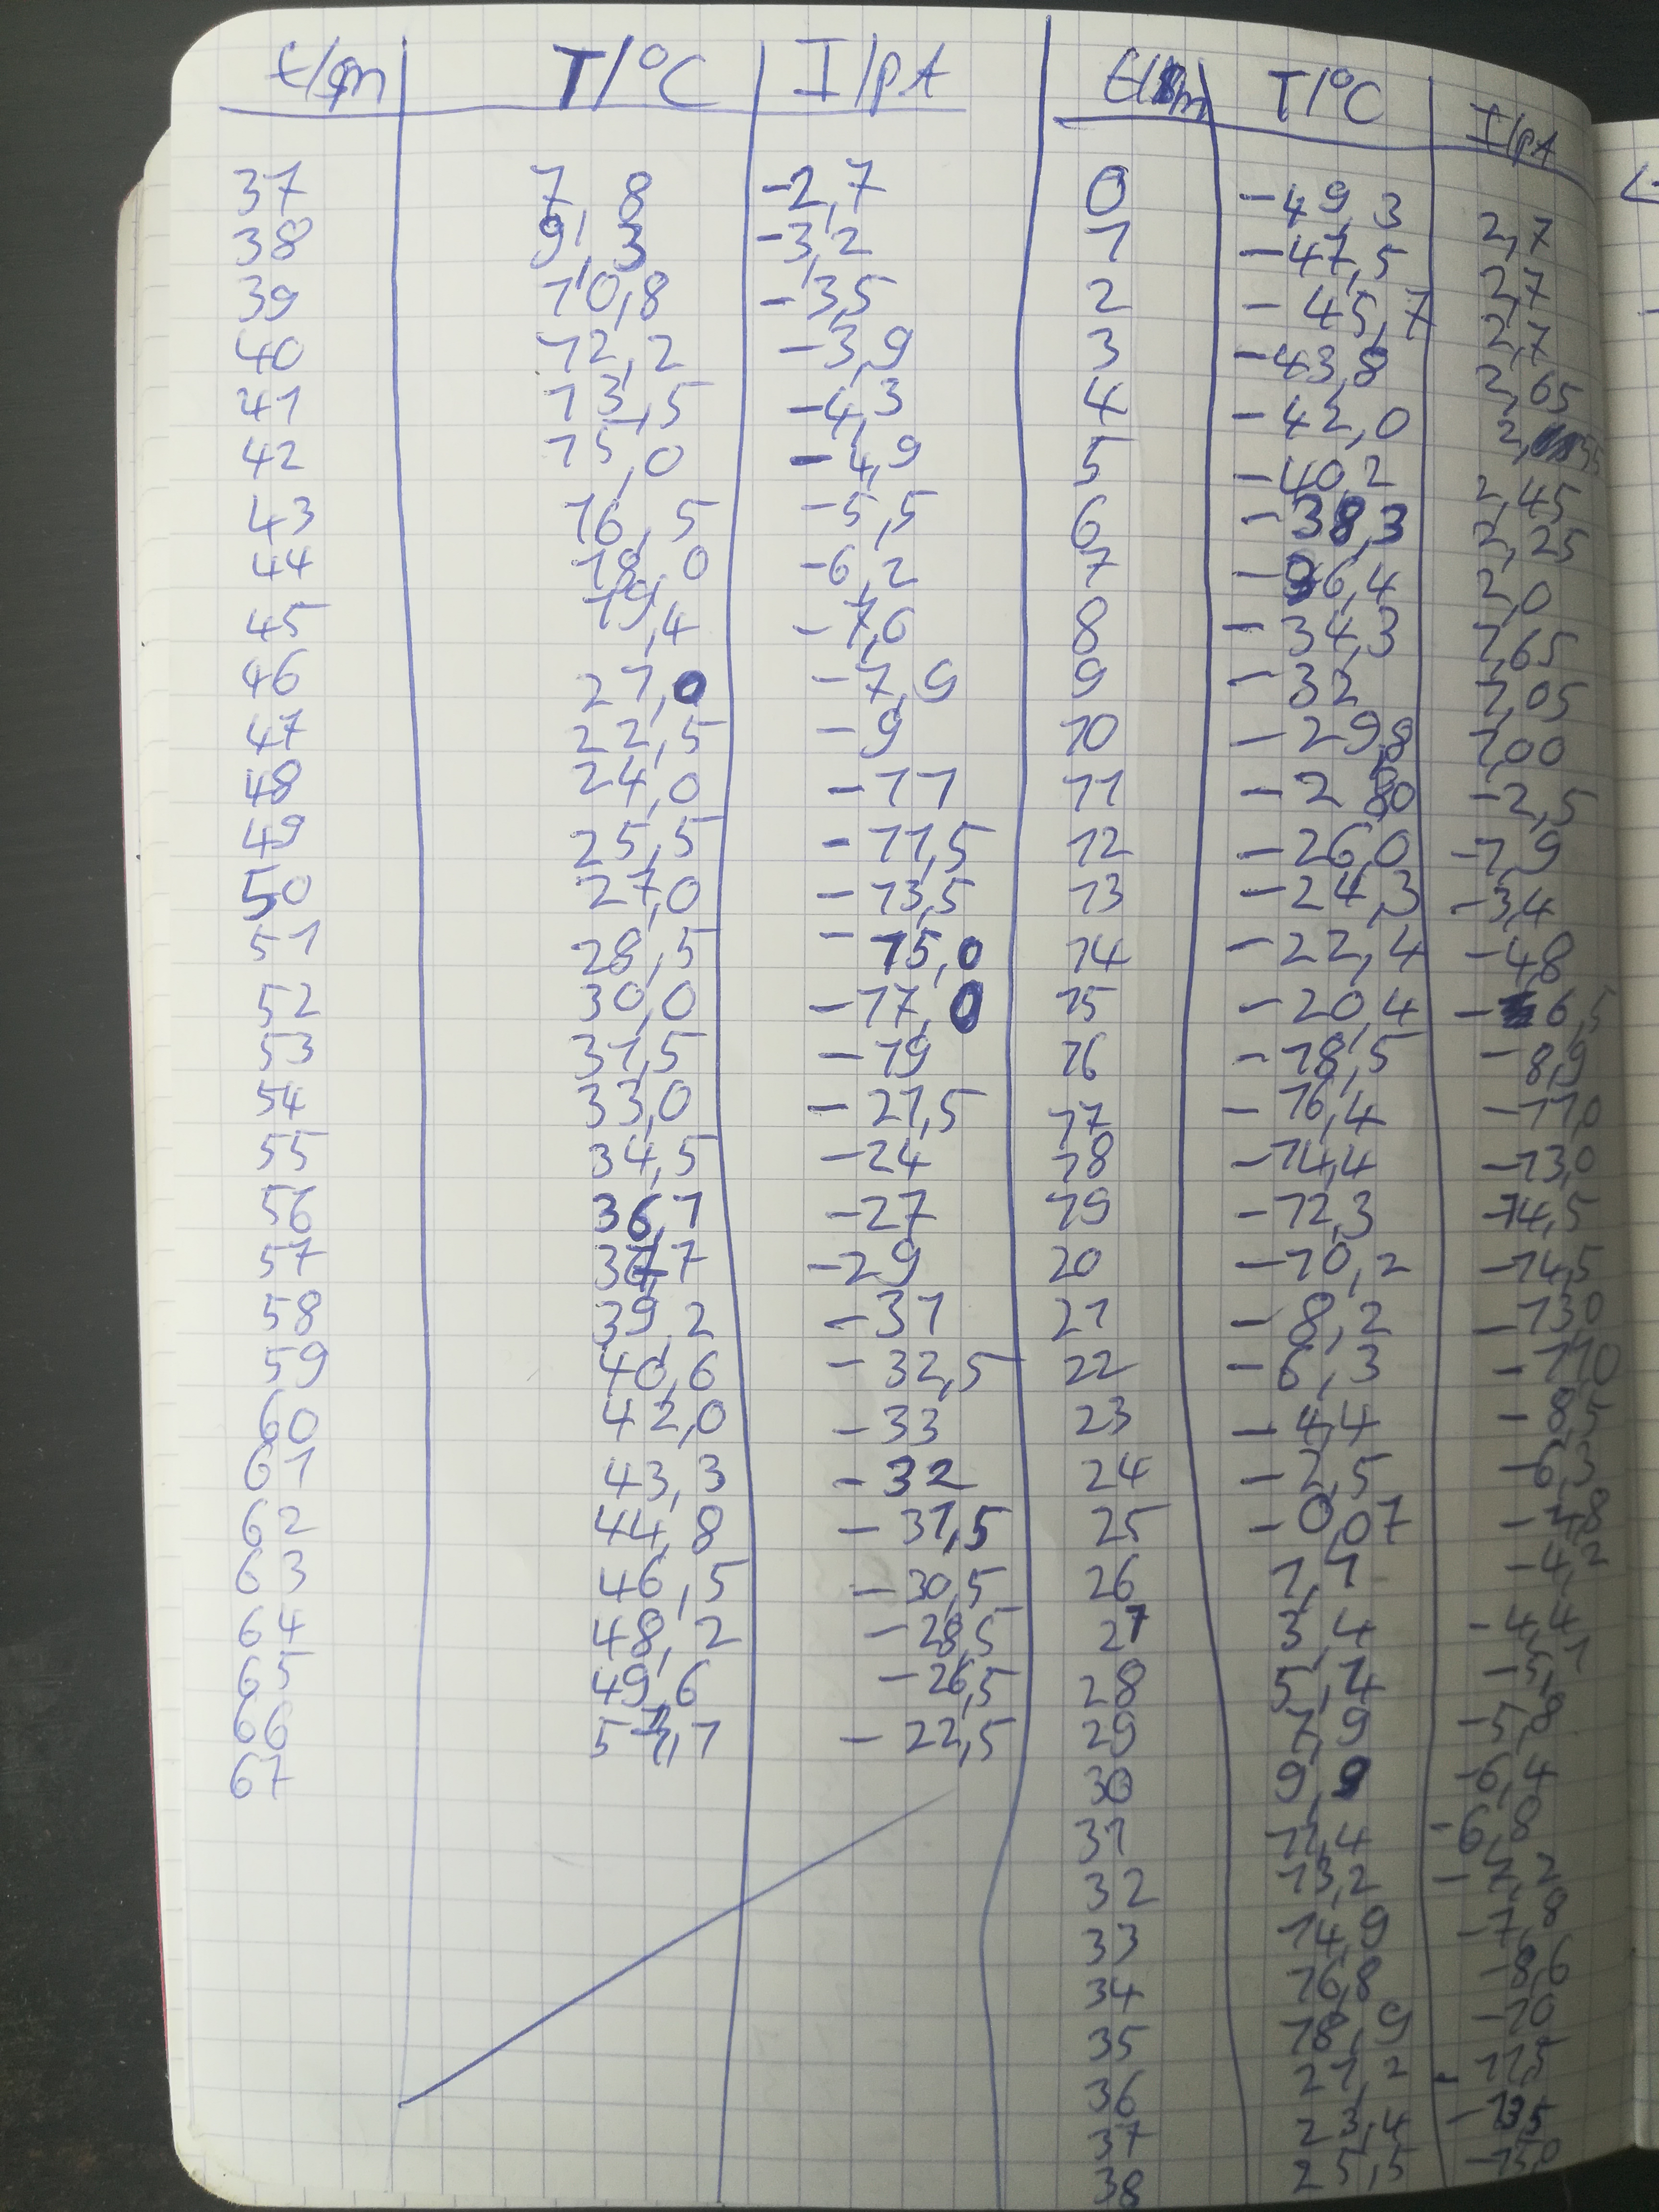 t/m T/°C I/pA
37 7,8 -2,7
38 9,3 -3,2
39 10,8 -3,5
40 12,2 -3,9
41 13,5 -4,3
42 15,0 -4,9
43 16,5 -5,5
44 18,0 -6,2
45 19,4 -7,6
46 21,0 -7,9
47 22,5 -9
48 24,0 -11
49 25,5 -11,5
50 27,0 -13,5
51 28,5 -15,0
52 30,0 -17,0
53 31,5 -19
54 33,0 -21,5
55 34,5 -24
56 36,1 -27
57 37,7 -29
58 39,2 -31
59 40,6 -32,5
60 42,0 -33
61 43,3 -32
62 44,8 -31,5
63 46,5 -30,5
64 48,2 -28,5
65 49,6 -26,5
66 51,1 -22,5
67
t/m T/°C I/pA
0 -49,3 2,7
1 -47,5 2,7
2 -45,7 2,7
3 -43,8 2,65
4 -42,0 2,55
5 -40,2 2,45
6 -38,3 2,25
7 -36,4 2,0
8 -34,3 1,65
9 -32 1,05
10 -29,8 1,00
11 -28,0 -2,5
12 -26,0 -1,9
13 -24,3 -3,4
14 -22,4 -4,8
15 -20,4 -6,5
16 -18,5 -8,9
17 -16,4 -11,0
18 -14,4 -13,0
19 -12,3 -14,5
20 -10,2 -14,5
21 -8,2 -13,0
22 -6,3 -11,0
23 -4,4 -8,5
24 -2,5 -6,3
25 -0,07 -4,8
26 1,1 -4,2
27 3,4 -4,4
28 5,4 -5,1
29 7,9 -5,8
30 9,9 -6,4
31 11,4 -6,8
32 13,2 -7,2
33 14,9 -7,8
34 16,8 -8,6
35 18,9 -10
36 21,2 -11,5
37 23,4 -13,5
38 25,5 -15,0